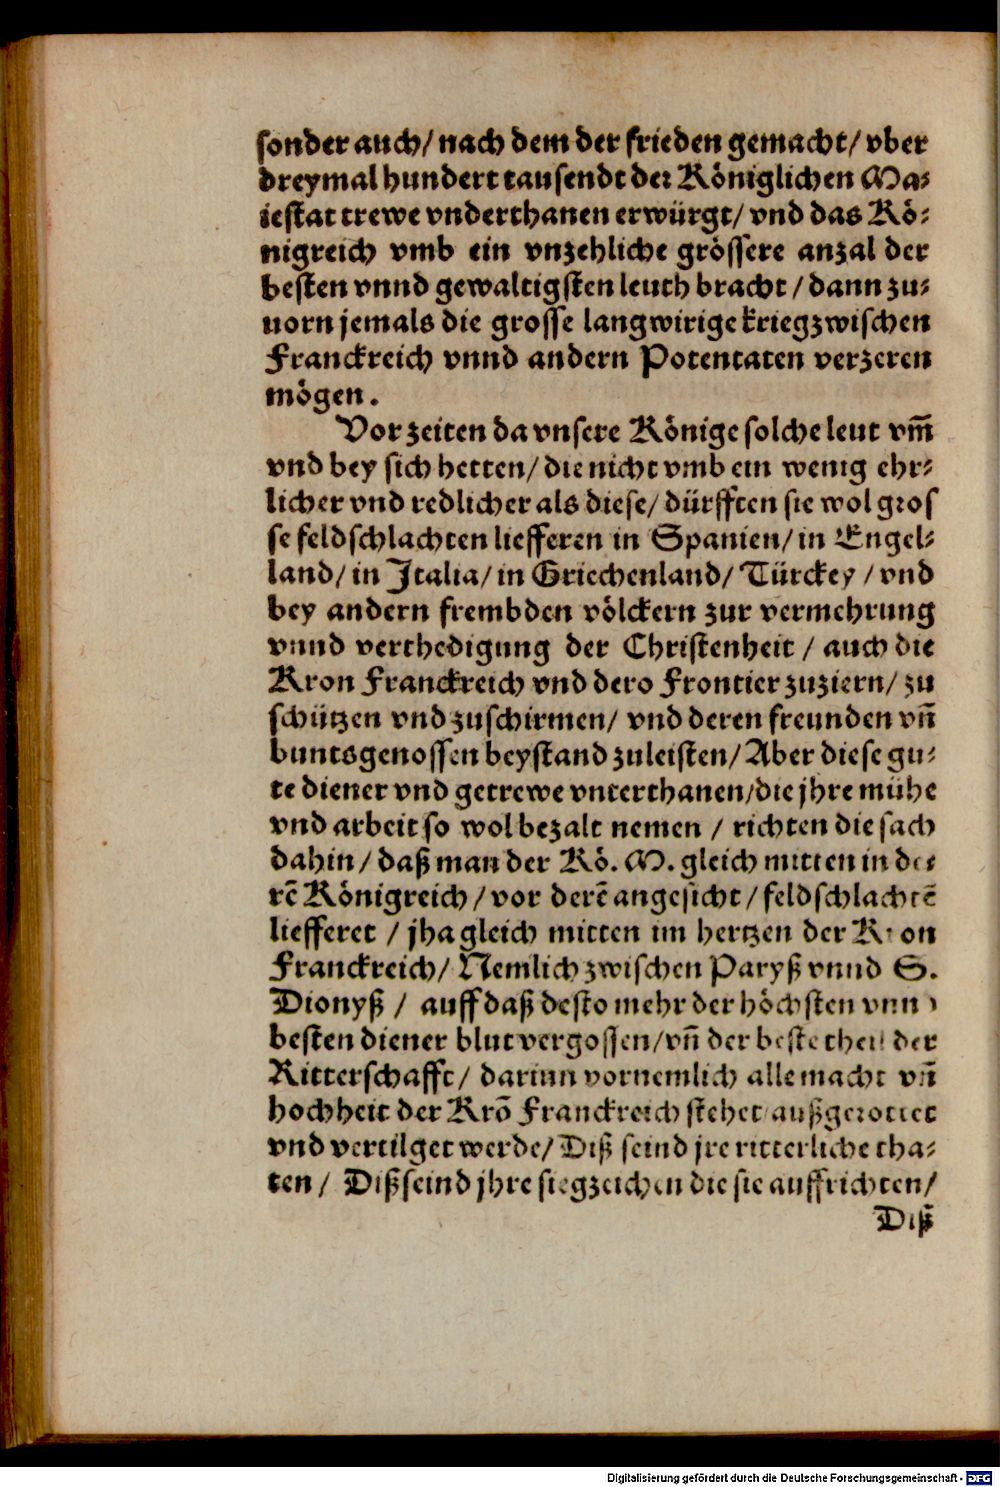 sonder auch/ nach dem der frieden gemacht/ vber
dreymal hundert tausendt der Königlichen Ma-
iestat trewe vnderthanen erwürgt/ vnd das Kö-
nigreich vmb ein vnzehliche grössere anzal der
besten vnnd gewaltigsten leuth bracht / dann zu-
uorn jemals die grosse langwirige krieg zwischen
Franckreich vnnd andern Potentaten verzeren
mögen.
Vor zeiten da vnsere Könige solche leut vm̃
vnd bey sich hetten/ die nicht vmb ein wenig ehr-
licher vnd redlicher als diese/ dürfften sie wol gros
se feldschlachten liefferen in Spanien/ in Engel-
land/ in Italia/ in Griechenland/ Türckey / vnd
bey andern frembden völckern zur vermehrung
vnnd verthedigung der Christenheit / auch die
Kron Franckreich vnd dero Frontier zuziern/ zu
schützen vnd zuschirmen/ vnd deren freunden vñ
buntsgenossen beystand zuleisten/ Aber diese gu-
te diener vnd getrewe vnterthanen/ die jhre mühe
vnd arbeit so wol bezalt nemen / richten die sach
dahin/ daß man der Kö. M. gleich mitten in de-
rẽ Königreich/ vor derẽ angesicht/ feldschlachtẽ
liefferet / jha gleich mitten im hertzen der Kron
Franckreich/ Nemlich zwischen Paryß vnnd S.
Dionyß / auff daß desto mehr der höchsten vnn
besten diener blut vergossen/ vñ der beste theil der
Ritterschafft/ darinn vornemlich alle macht vñ
hochheit der Krõ Franckreich stehet außgerottet
vnd vertilget werde/ Diß seind jre ritterliche tha-
ten / Diß seind jhre siegzeichen die sie auffrichten/
Diß
Digitalisierung gefördert durch die Deutsche Forschungsgemeinschaft - DFG